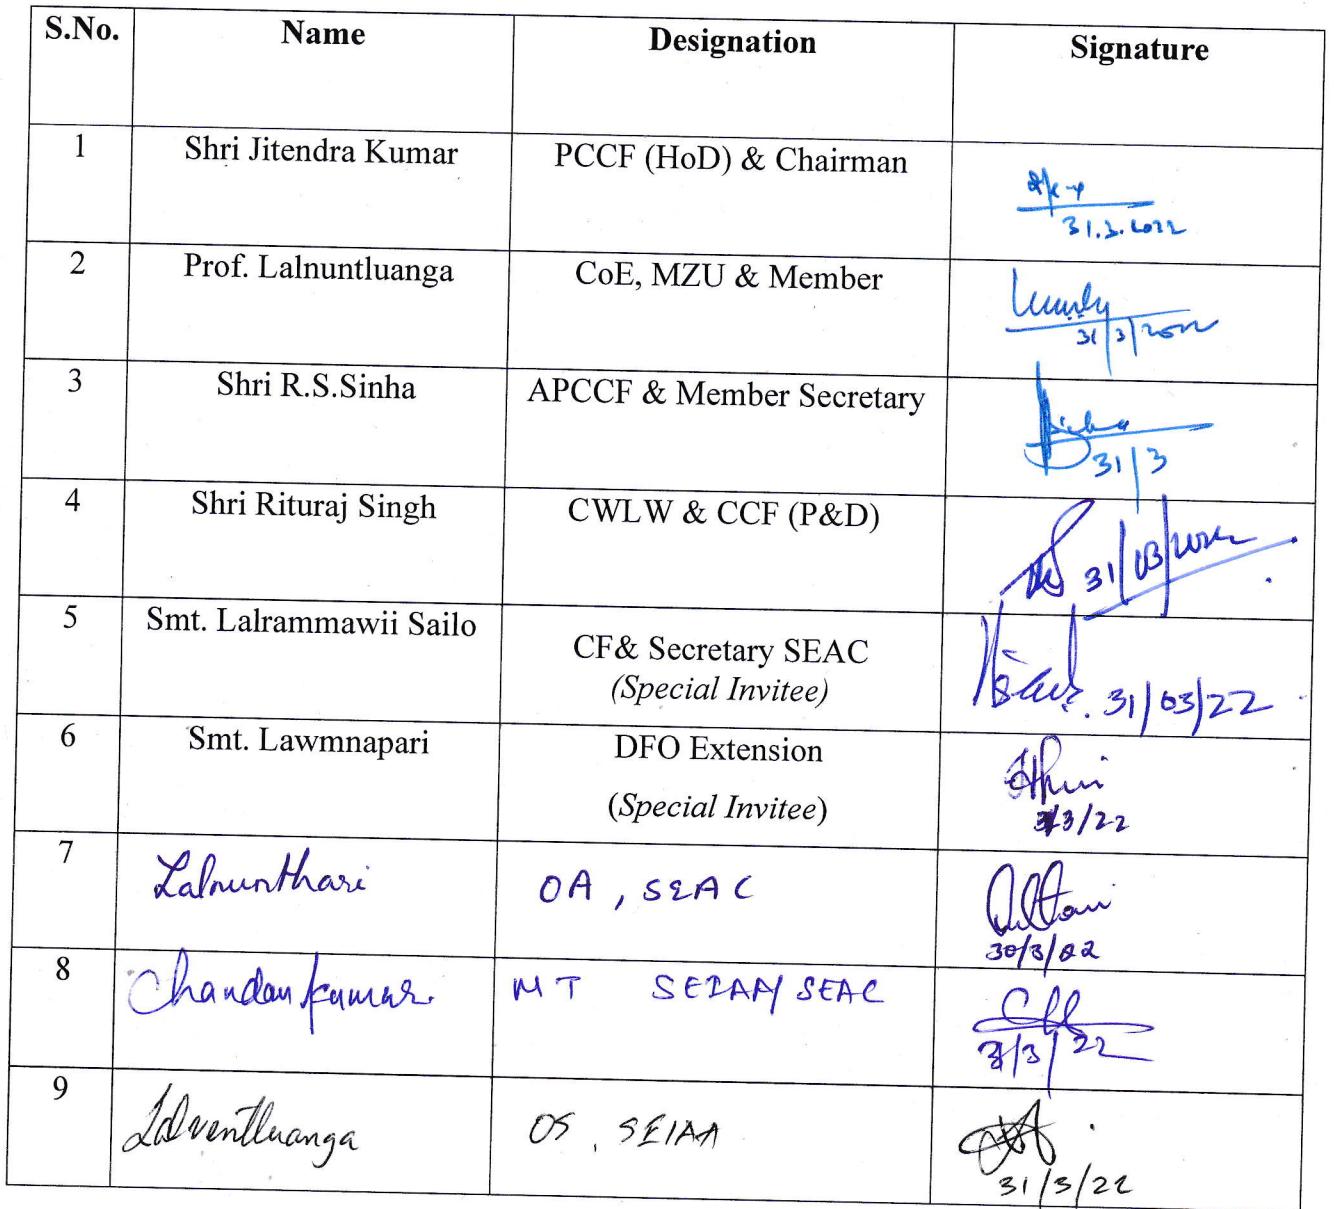 S.No. Name Designation Signature
1 Shri Jitendra Kumar PCCF (HoD) & Chairman
31.3.2022
2 Prof. Lalnuntluanga CoE, MZU & Member
31/3/2022
3 Shri R.S.Sinha APCCF & Member Secretary
31/3
4 Shri Rituraj Singh CWLW & CCF (P&D)
31/03/2022
5 Smt. Lalrammawii Sailo CF& Secretary SEAC
(Special Invitee)
31/03/22
6 Smt. Lawmnapari DFO Extension
(Special Invitee)
3/22
7 Lalnunthari OA, SEAC
30/3/22
8 Chandan Kumar. MT SEIAA/SEAC
31/3/22
9 Lalventluanga OS, SEIAA
31/3/22